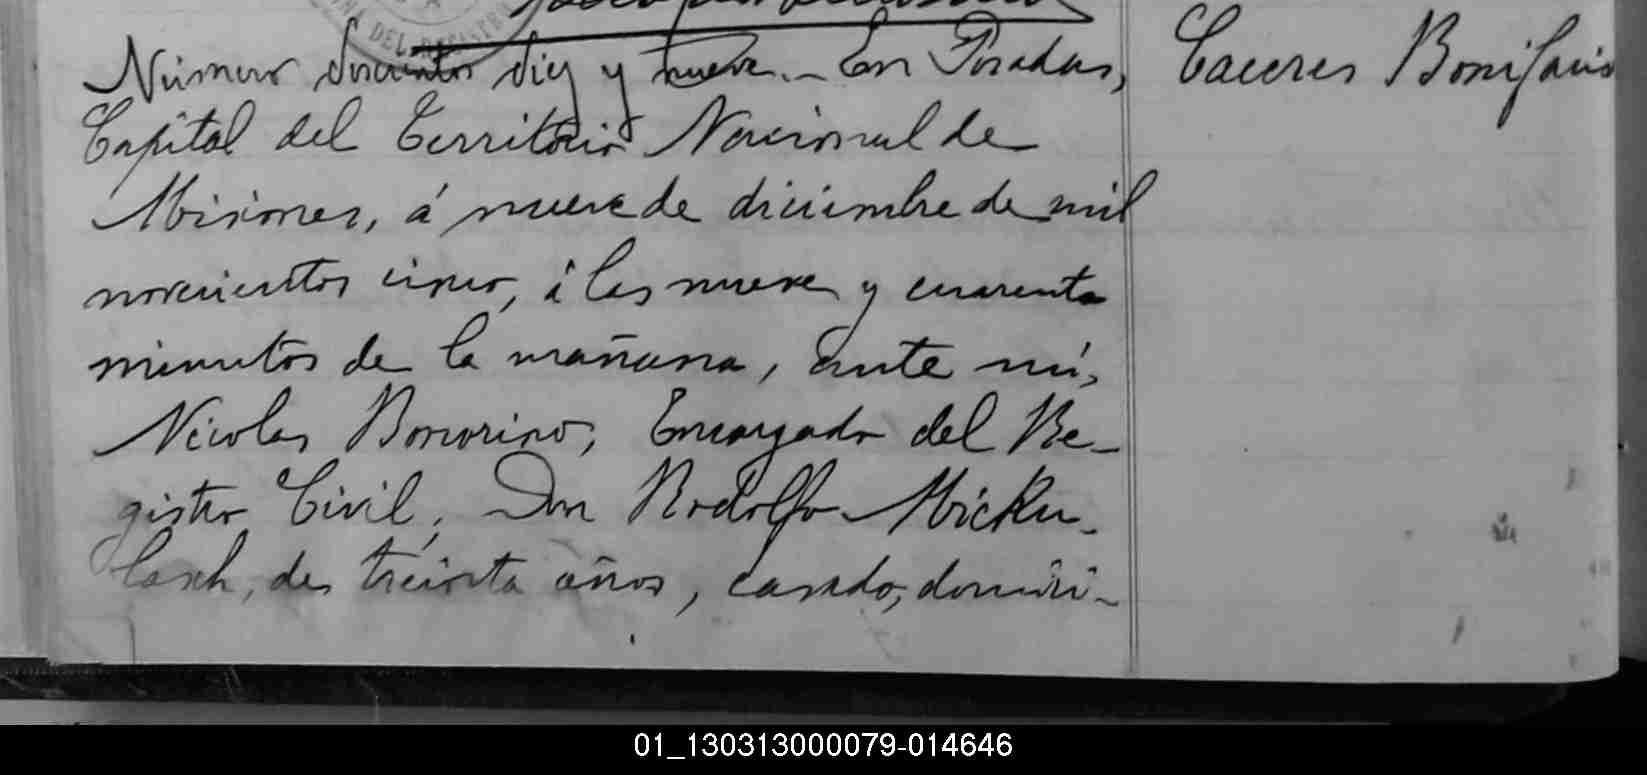 DEL REGISTRO
Número doscientos diez y nueve.- En Posadas,
Caceres Bonifacio
Capital del Territorio Nacional de
Misiones, á nueve de diciembre de mil
novecientos cinco, á las nueve y cuarenta
minutos de la mañana, ante mí,
Nicolas Bonorino, Encargado del Re-
gistro Civil, Don Rodolfo Micku-
lasch, de treinta años, casado, domici-
01_130313000079-014646